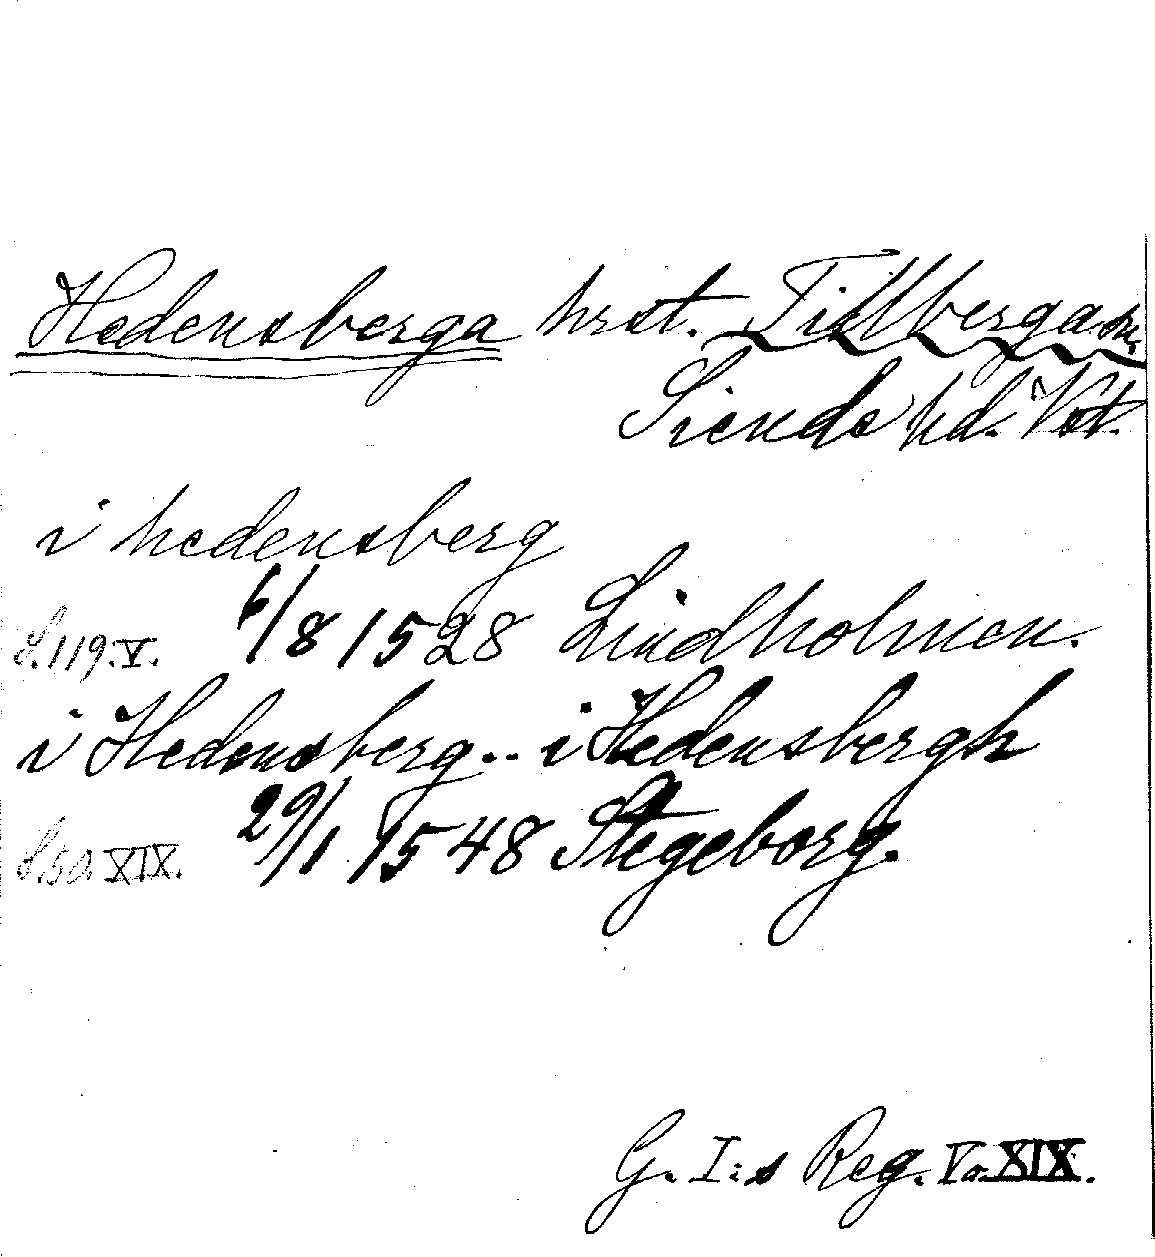 Hedensberga hrst. Tillberga sn.
Siende hd. Vst.
i hedensberg
S. 119. V. 6/8 1528 Lindholmen.
i Hedensberg .. i Hedensbergh
S. 50. XIX. 29/1 1548 Stegeborg.
G. I:s Reg. V o. XIX.